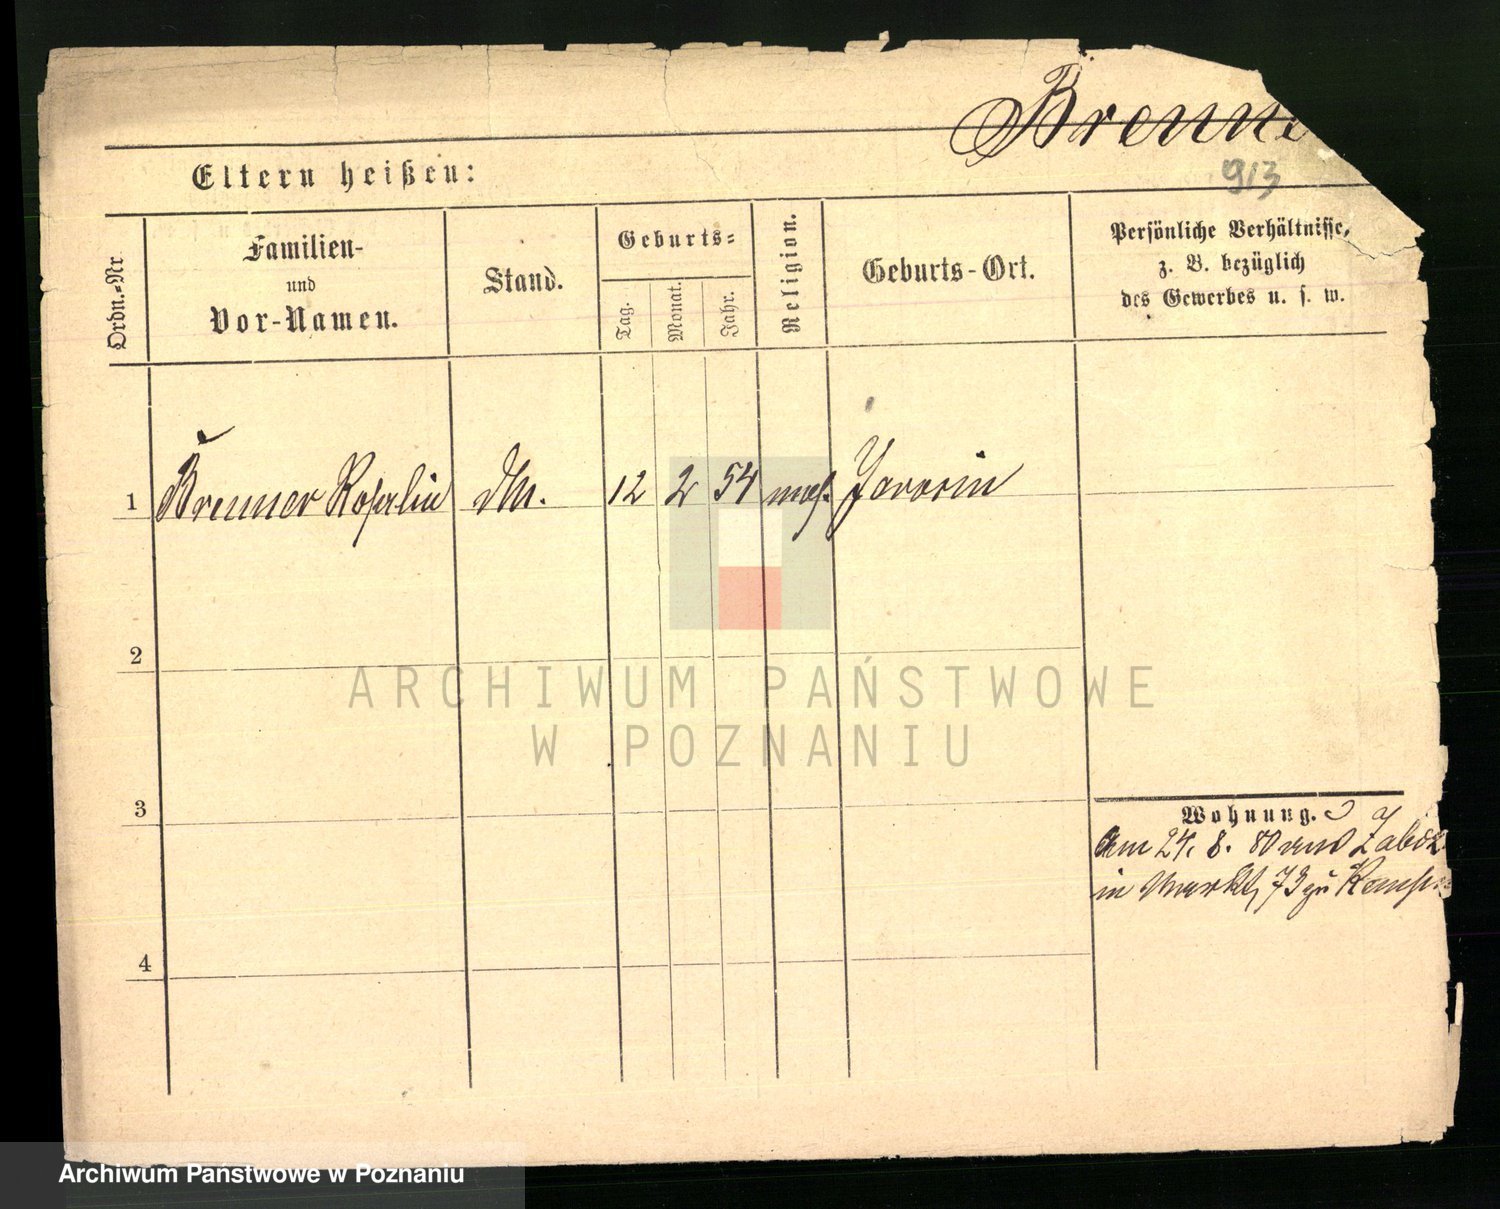 Brenne
913
Eltern heißen:
Ordn.-Nr
Familien-
und
Vor-Namen.
Stand.
Geburts-
Tag.
Monat.
Jahr.
Religion.
Geburts-Ort.
Persönliche Verhältnisse,
z. B. bezüglich
des Gewerbes u. s. w.
1 Brenner Rosalie 12 2 54 mos. Jarocin
2
ARCHIWUM PAŃSTWOWE
W POZNANIU
3
Wohnung.
Am 24. 8. 80
in Markt 73 zu
4
Archiwum Państwowe w Poznaniu